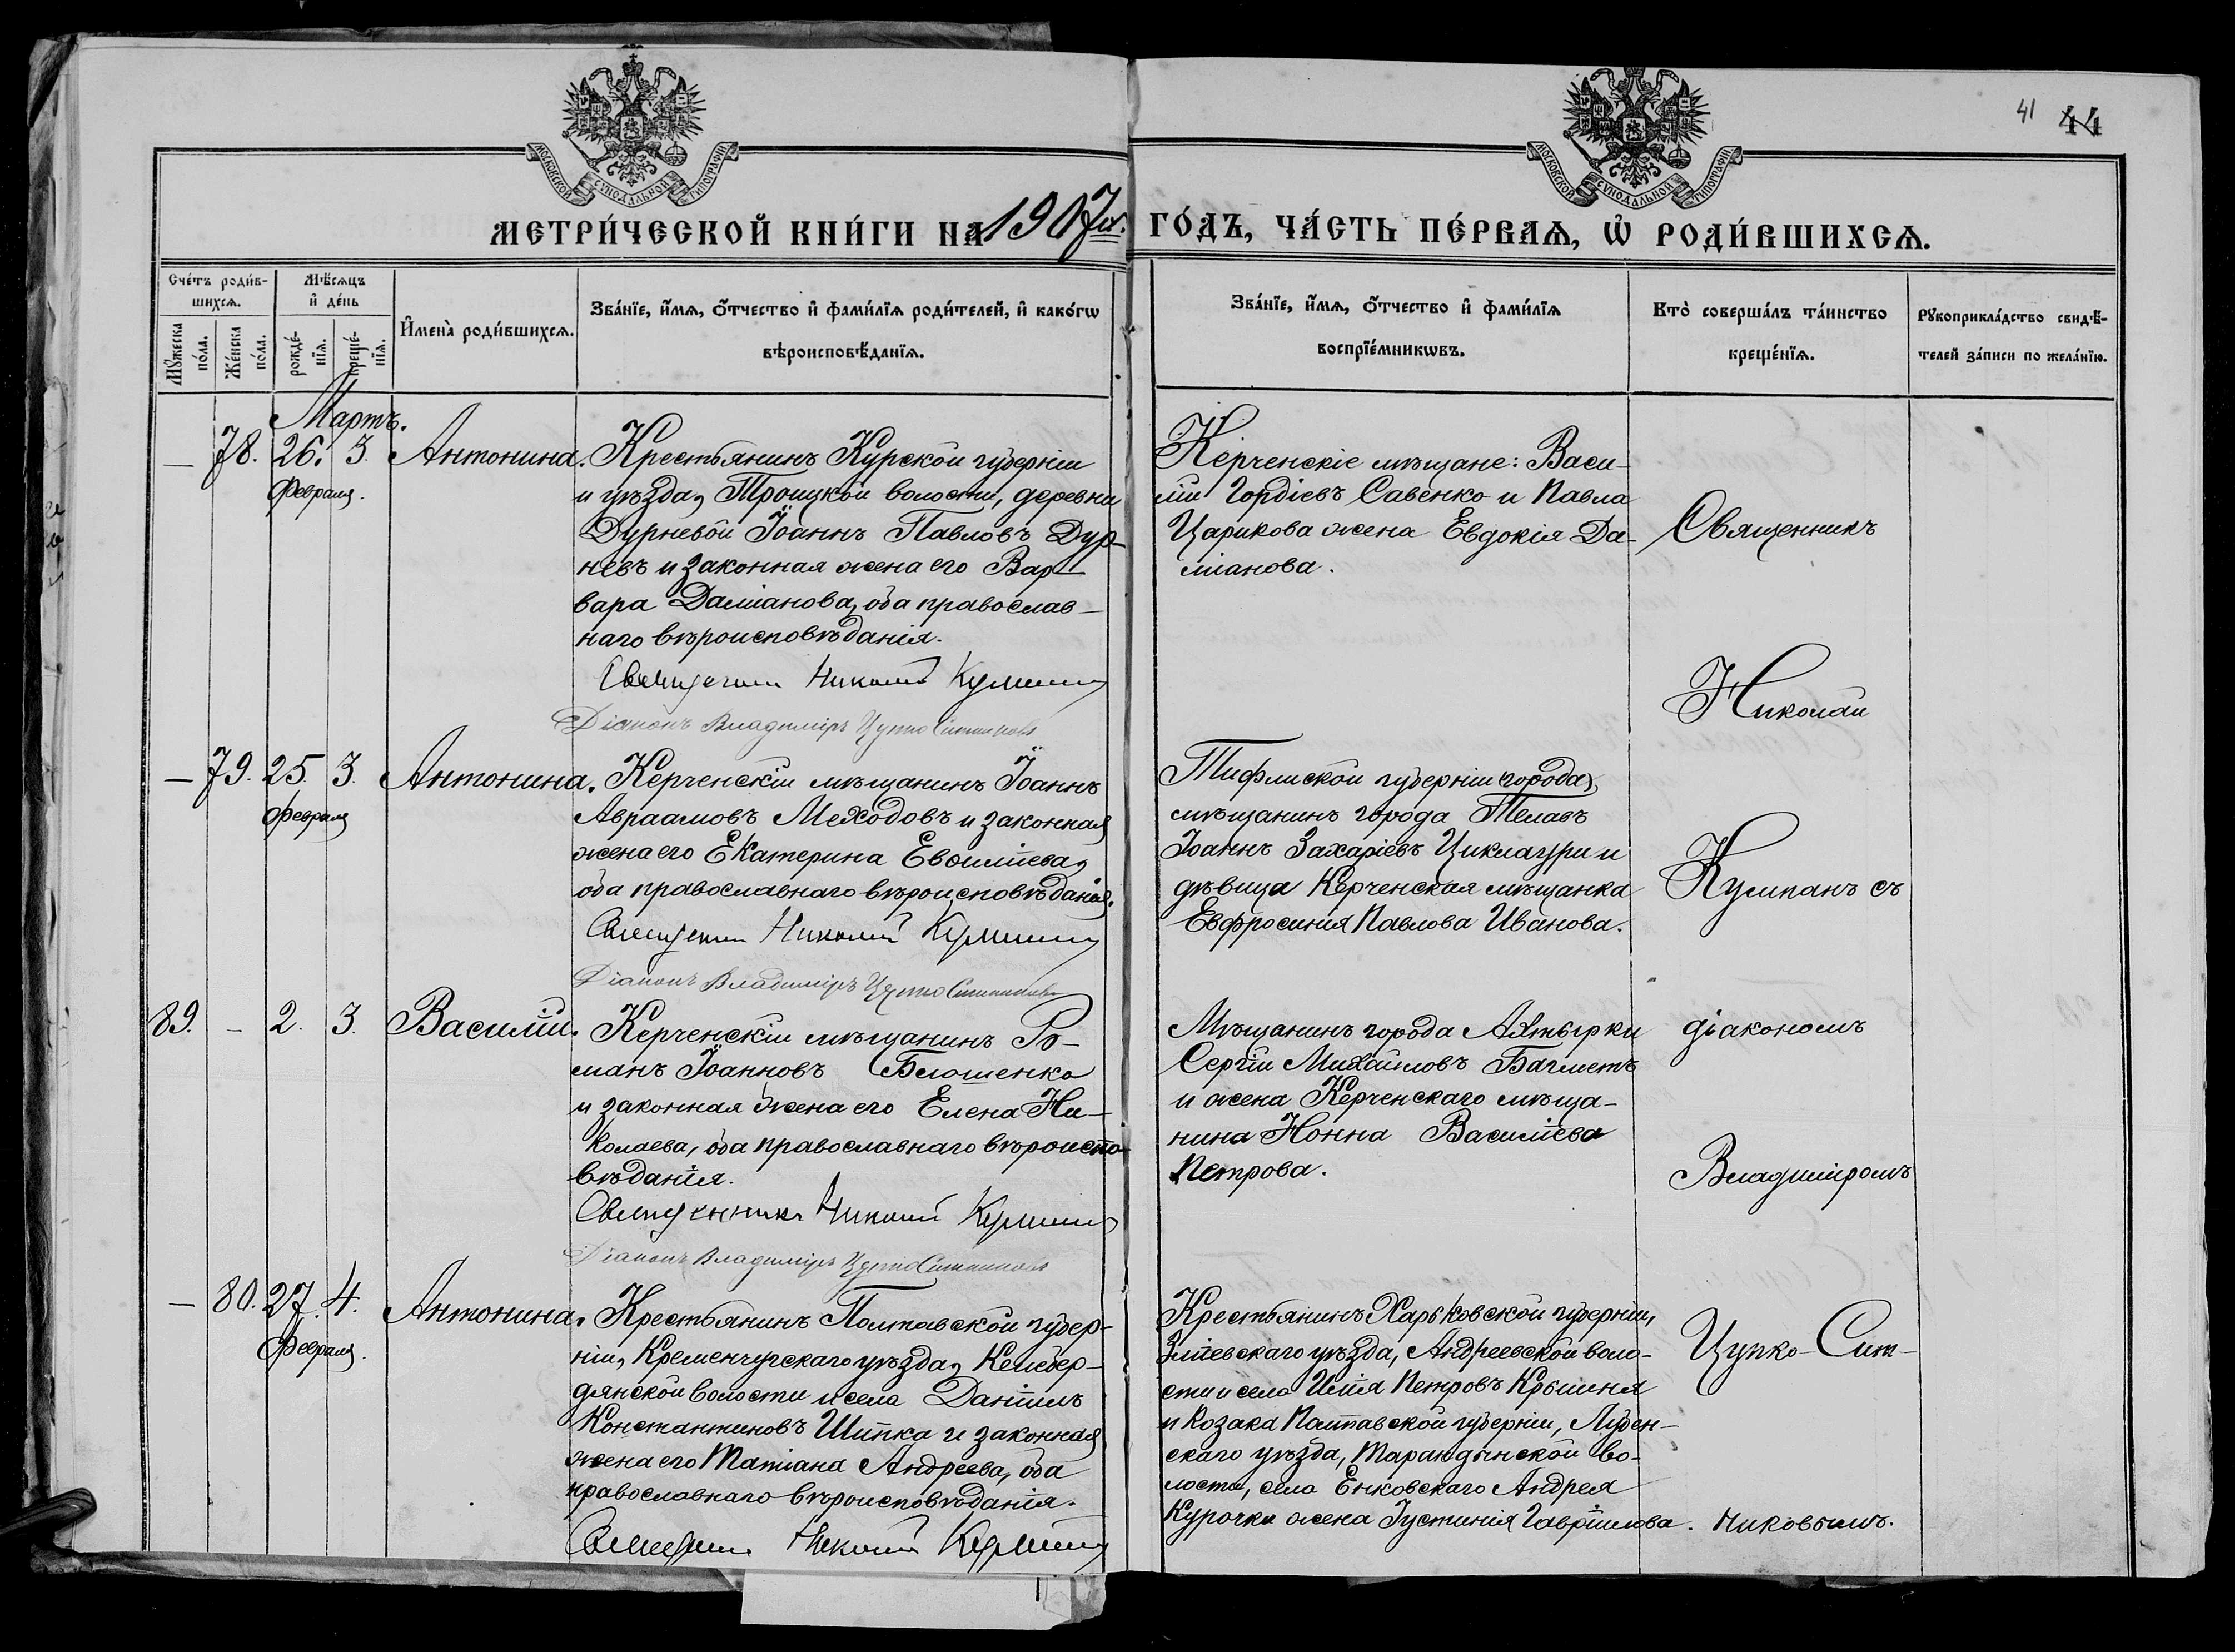 41 44
МОСКОВСКОЙ СѴНОДАЛЬНОЙ ТИПОГРАФІИ
МОСКОВСКОЙ СѴНОДАЛЬНОЙ ТИПОГРАФІИ
МЕТРИ́ЧЕСКОЙ КНИ́ГИ НА 1907 й. ГО́ДЪ, ЧА́СТЬ ПЕ́РВАѦ, Ѡ҆ РОДИ́ВШИХСѦ.
Сче́тъ роди́в-
шихсѧ.
Мꙋ́жеска по́ла.
Же́нска по́ла.
Мѣ́сѧцъ
и҆ де́нь
рожде́-
нїѧ.
креще́-
нїѧ.
И҆мена̀ роди́вшихсѧ.
Зва́нїе, и҆́мѧ, ѻ҆́тчество и҆ фами́лїѧ роди́телей, и҆ како́гѡ
вѣроисповѣ́данїѧ.
Зва́нїе, и҆́мѧ, ѻ҆́тчество и҆ фами́лїѧ
воспрїе́мникѡвъ.
Кто̀ соверша́лъ та́инство
креще́нїѧ.
Рꙋкоприкла́дство свидѣ́-
телей за́писи по жела́нїю.
Мартъ.
— 78. 26. 3. Антонина.
Февраля.
Крестьянинъ Курской губерніи
и уѣзда, Троицкой волости, деревни
Дурневой Іоаннъ Павловъ Дур-
невъ и законная жена его Вар-
вара Даміанова, оба православ-
наго вѣроисповѣданія.
Священникъ Николай Кумпанъ
Діаконъ Владиміръ Цупко Ситниковъ
Керченскіе мѣщане: Васи-
лій Гордіевъ Савенко и Павла
Царикова жена Евдокія Да-
міанова.
— 79. 25. 3. Антонина.
Февраля
Керченскій мѣщанинъ Іоаннъ
Авраамовъ Меходовъ и законная
жена его Екатерина Евфиміева,
оба православнаго вѣроисповѣданія.
Священникъ Николай Кумпанъ
Діаконъ Владиміръ Цупко Ситниковъ
Тифлиской губерніи города,
мѣщанинъ города Телавъ
Іоаннъ Захаріевъ Циклаури и
дѣвица Керченская мѣщанка
Евфросинія Павлова Иванова.
89. — 2. 3. Василій.
Керченскій мѣщанинъ Ро-
манъ Іоанновъ Блошенко
и законная жена его Елена Ни-
колаева, оба православнаго вѣроиспо-
вѣданія.
Священникъ Николай Кумпанъ
Діаконъ Владиміръ Цупко Ситниковъ
Мѣщанинъ города Ахтырки
Сергій Михайловъ Багметъ
и жена Керченскаго мѣща-
нина Нонна Василіева
Петрова.
— 80. 27. 4. Антонина.
Февраля.
Крестьянинъ Полтавской губер-
ніи, Кременчугскаго уѣзда, Келебер-
дянской волости и села Даніилъ
Константиновъ Шипка и законная
жена его Татіана Андреева, оба
православнаго вѣроисповѣданія.
Священникъ Николай Кумпанъ
Крестьянинъ Харьковской губерніи,
Зміевскаго уѣзда, Андреевской воло-
сти и села Илія Петровъ
и козака Полтавской губерніи, Лубен-
скаго уѣзда, Тарандинской во-
лости, села Енковскаго Андрея
Курочки жена Іустинія Гавріилова.
Священникъ
Николай
Кумпанъ съ
діакономъ
Владиміромъ
Цупко-Сит-
никовымъ.